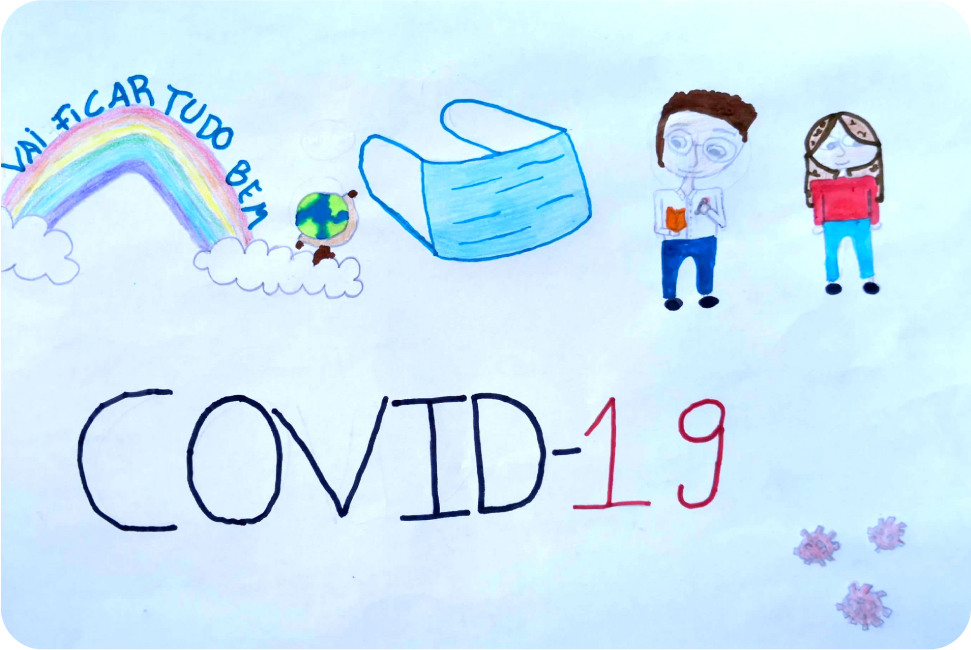 VAI FICAR TUDO BEM
COVID-19